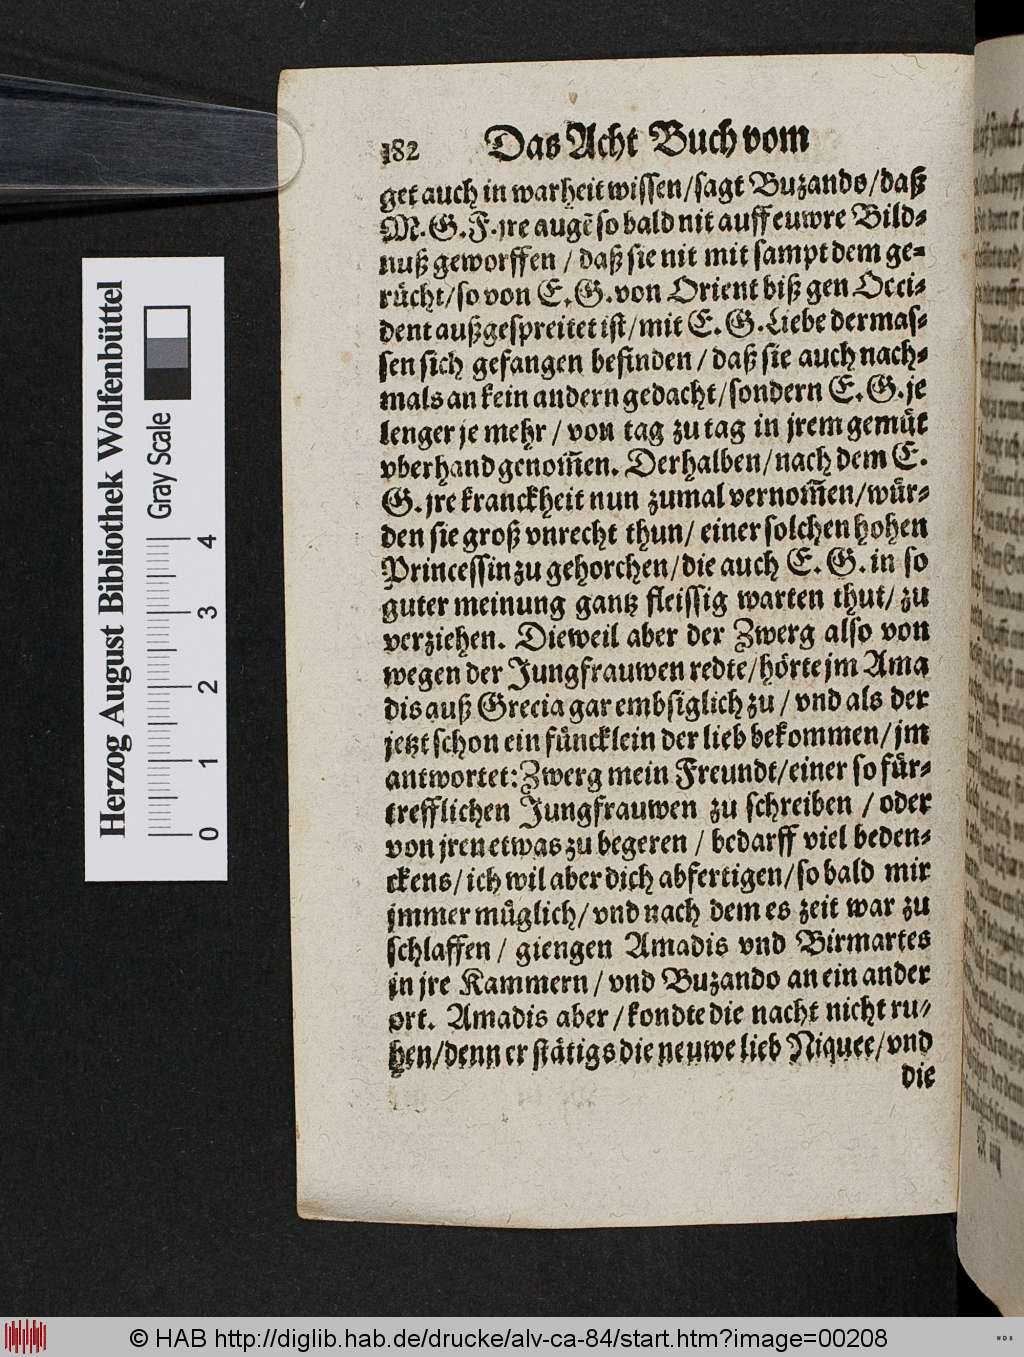 182 Das Acht Buch vom
get auch in warheit wissen/sagt Buzando/daß
M. G. F. jre augē so bald nit auff euwre Bild-
nuß geworffen / daß sie nit mit sampt dem ge-
rücht/so von E. G. von Orient biß gen Occi-
dent außgespreitet ist/mit E. G. Liebe dermas-
sen sich gefangen befinden / daß sie auch nach-
mals an kein andern gedacht/sondern E. G. je
lenger je mehr / von tag zu tag in jrem gemüt
vberhand genom̃en. Derhalben/nach dem E.
G. jre kranckheit nun zumal vernom̃en/wür-
den sie groß vnrecht thun/ einer solchen hohen
Princessin zu gehorchen/die auch E. G. in so
guter meinung gantz fleissig warten thut/ zu
verziehen. Dieweil aber der Zwerg also von
wegen der Jungfrauwen redte/hörte jm Ama
dis auß Grecia gar embsiglich zu / vnd als der
jetzt schon ein füncklein der lieb bekommen/jm
antwortet: Zwerg mein Freundt/einer so für-
trefflichen Jungfrauwen zu schreiben / oder
von jren etwas zu begeren / bedarff viel beden-
ckens/ ich wil aber dich abfertigen/so bald mir
jmmer müglich/ vnd nach dem es zeit war zu
schlaffen / giengen Amadis vnd Birmartes
in jre Kammern / vnd Buzando an ein ander
ort. Amadis aber / kondte die nacht nicht ru-
hen/denn er stätigs die neuwe lieb Niquee/vnd
die
Herzog August Bibliothek Wolfenbüttel
Gray Scale
0 1 2 3 4
© HAB http://diglib.hab.de/drucke/alv-ca-84/start.htm?image=00208